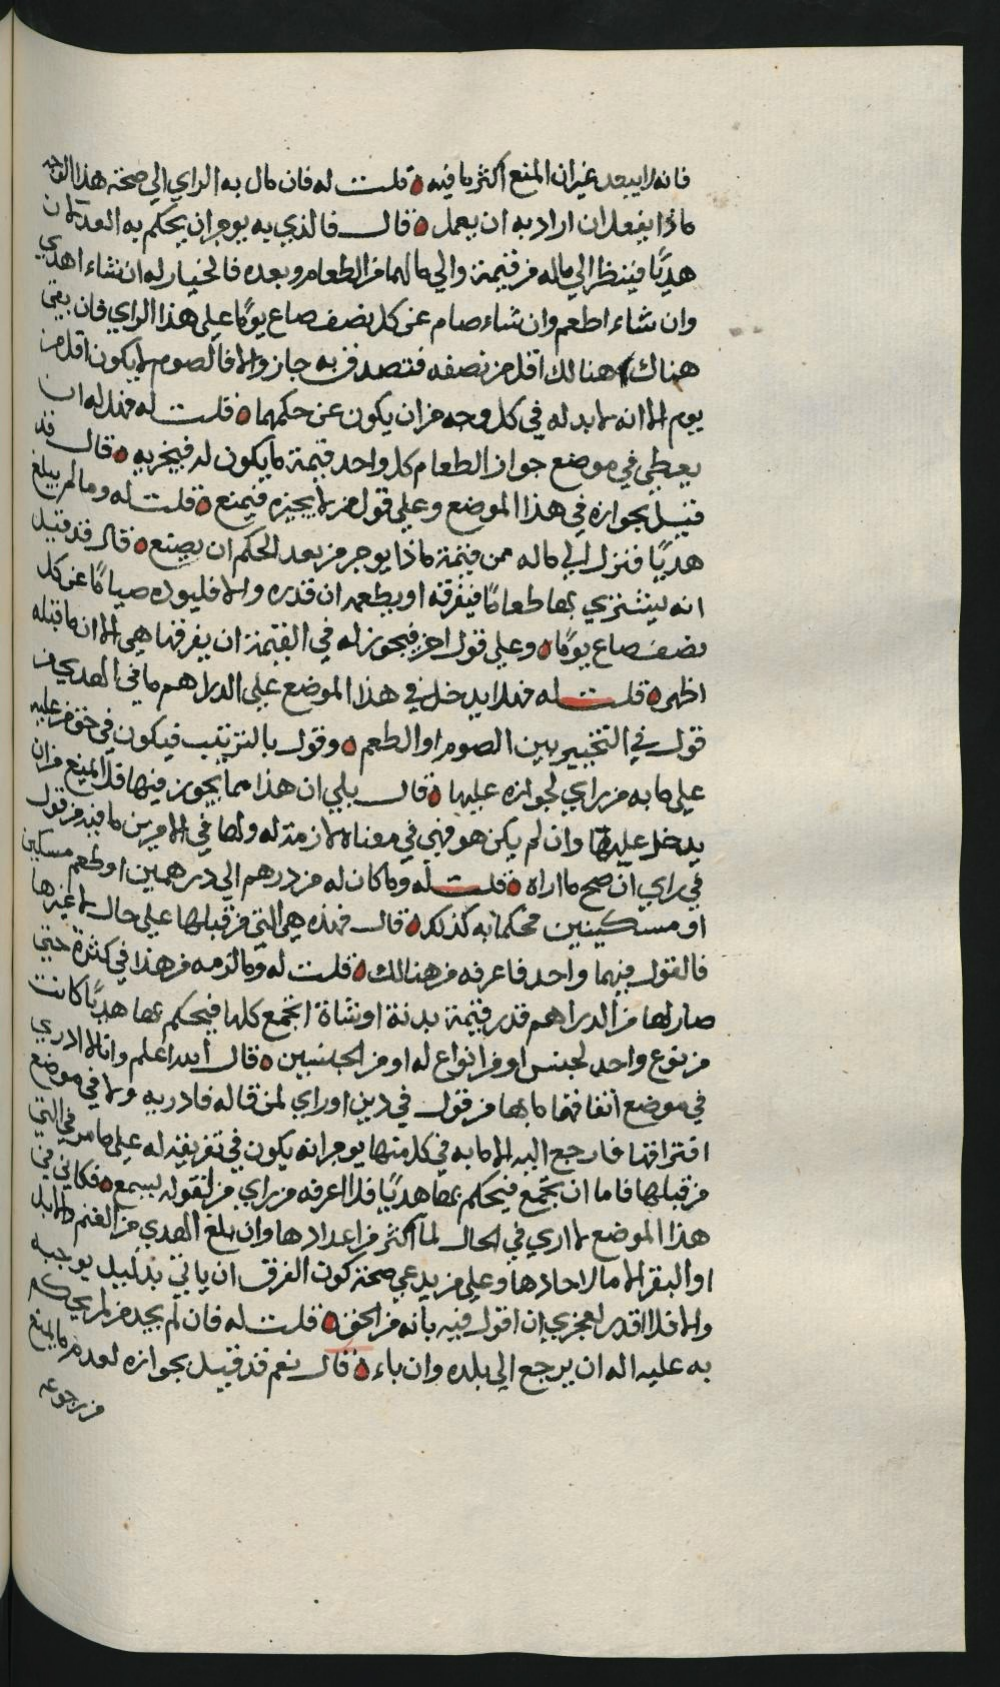 فانه لا يبعد غير ان المنع اكثر ما فيه ٥ قلت له فان مال به الراي الي صحة هذا الوجه
ماذا يفعل ان اراد به ان يعمل ٥ قال فالذي به يومر ان يحكم به العدلان
هديًا فينظر الي ماله من قيمة والي ما لهما من الطعام وبعده فالخيار له ان شاء اهدي
وان شاء اطعم وان شاء صام عن كل نصف صاع يومًا علي هذا الراي فان بقي
هناك هنالك اقل من نصفه فتصدق به جاز والا فالصوم لا يكون اقل من
يوم الا انه لا بد له في كل وجه من ان يكون عن حكمهما ٥ قلت له فهل له ان
يعطي في موضع جواز الطعام كل واحد قيمة ما يكون له فيجزيه ٥ قال قد
قيل بجوازه في هذا الموضع وعلي قول من لا يجيزه فيمنع ٥ قلت له وما لم يبلغ
هديًا فنزل الي ماله من قيمة ماذا يومر من بعد الحكم ان يصنع ٥ قال قد قيل
انه يشتري بها طعامًا فيفرقه او يطعمه ان قدره والا فليوده صيامًا عن كل
نصف صاع يومًا ٥ وعلي قول اخر فيجوز له في القيمة ان يفرقها هي الا ان ما قبله
اظهر ٥ قلت له فهل يدخل في هذا الموضع علي الدراهم ما في الهدي من
قول في التخيير بين الصوم او الطعم ٥ وقول بالترتيب فيكون في حق من عليه
علي ما به من راي لجوازه عليها ٥ قال بلي ان هذا مما يجوز فيها فلا يمنع من ان
يدخل عليها وان لم يكن هو فهي في معناه لازمة له ولها في الامرين ما فيه من قول
في راي ان صح ما اراه ٥ قلت له وما كان له من درهم الي درهمين او طعم مسكين
او مسكينين محكما به كذلك ٥ قال فهذه هي التي من قبلها علي حال لا غيرها
فالقول فيهما واحد فاعرفه من هنالك ٥ قلت له وما لزمه من هذا في كثرة حتي
صار لها من الدراهم قدر قيمة بدنة او شاة اتجمع كلها فيحكم بها هديًا كانت
من نوع واحد لجنس او من انواع له او من الجنسين ٥ قال الله اعلم وانا لا ادري
في موضع انفاقها ما بها من قول في دين او راي لمن قاله فادريه ولا في موضع
افتراقها فارجع اليه الا ما به في كل منها يومر انه يكون في تفريقه له علي ما مر في التي
من قبلها فاما ان تجمع فيحكم بها هديًا فلا اعرفه من راي من لقوله يسمع ٥ فكاني في
هذا الموضع لا اري في الحال لما اكثر من اعدادها وان بلغ الهدي من الغنم والابل
او البقر الا ما لاحادها وعلي من يدعي صحة كون الفرق ان ياتي بدليل يوجبه
والا فلا اقدر لعجزي ان اقول فيه بانه من الحق ٥ قلت له فان لم يجد من لم يحكم
به عليه اله ان يرجع الي بلده وان باء ٥ قال نعم قد قيل بجوازه لعدم ما يمنع
من رجوعه